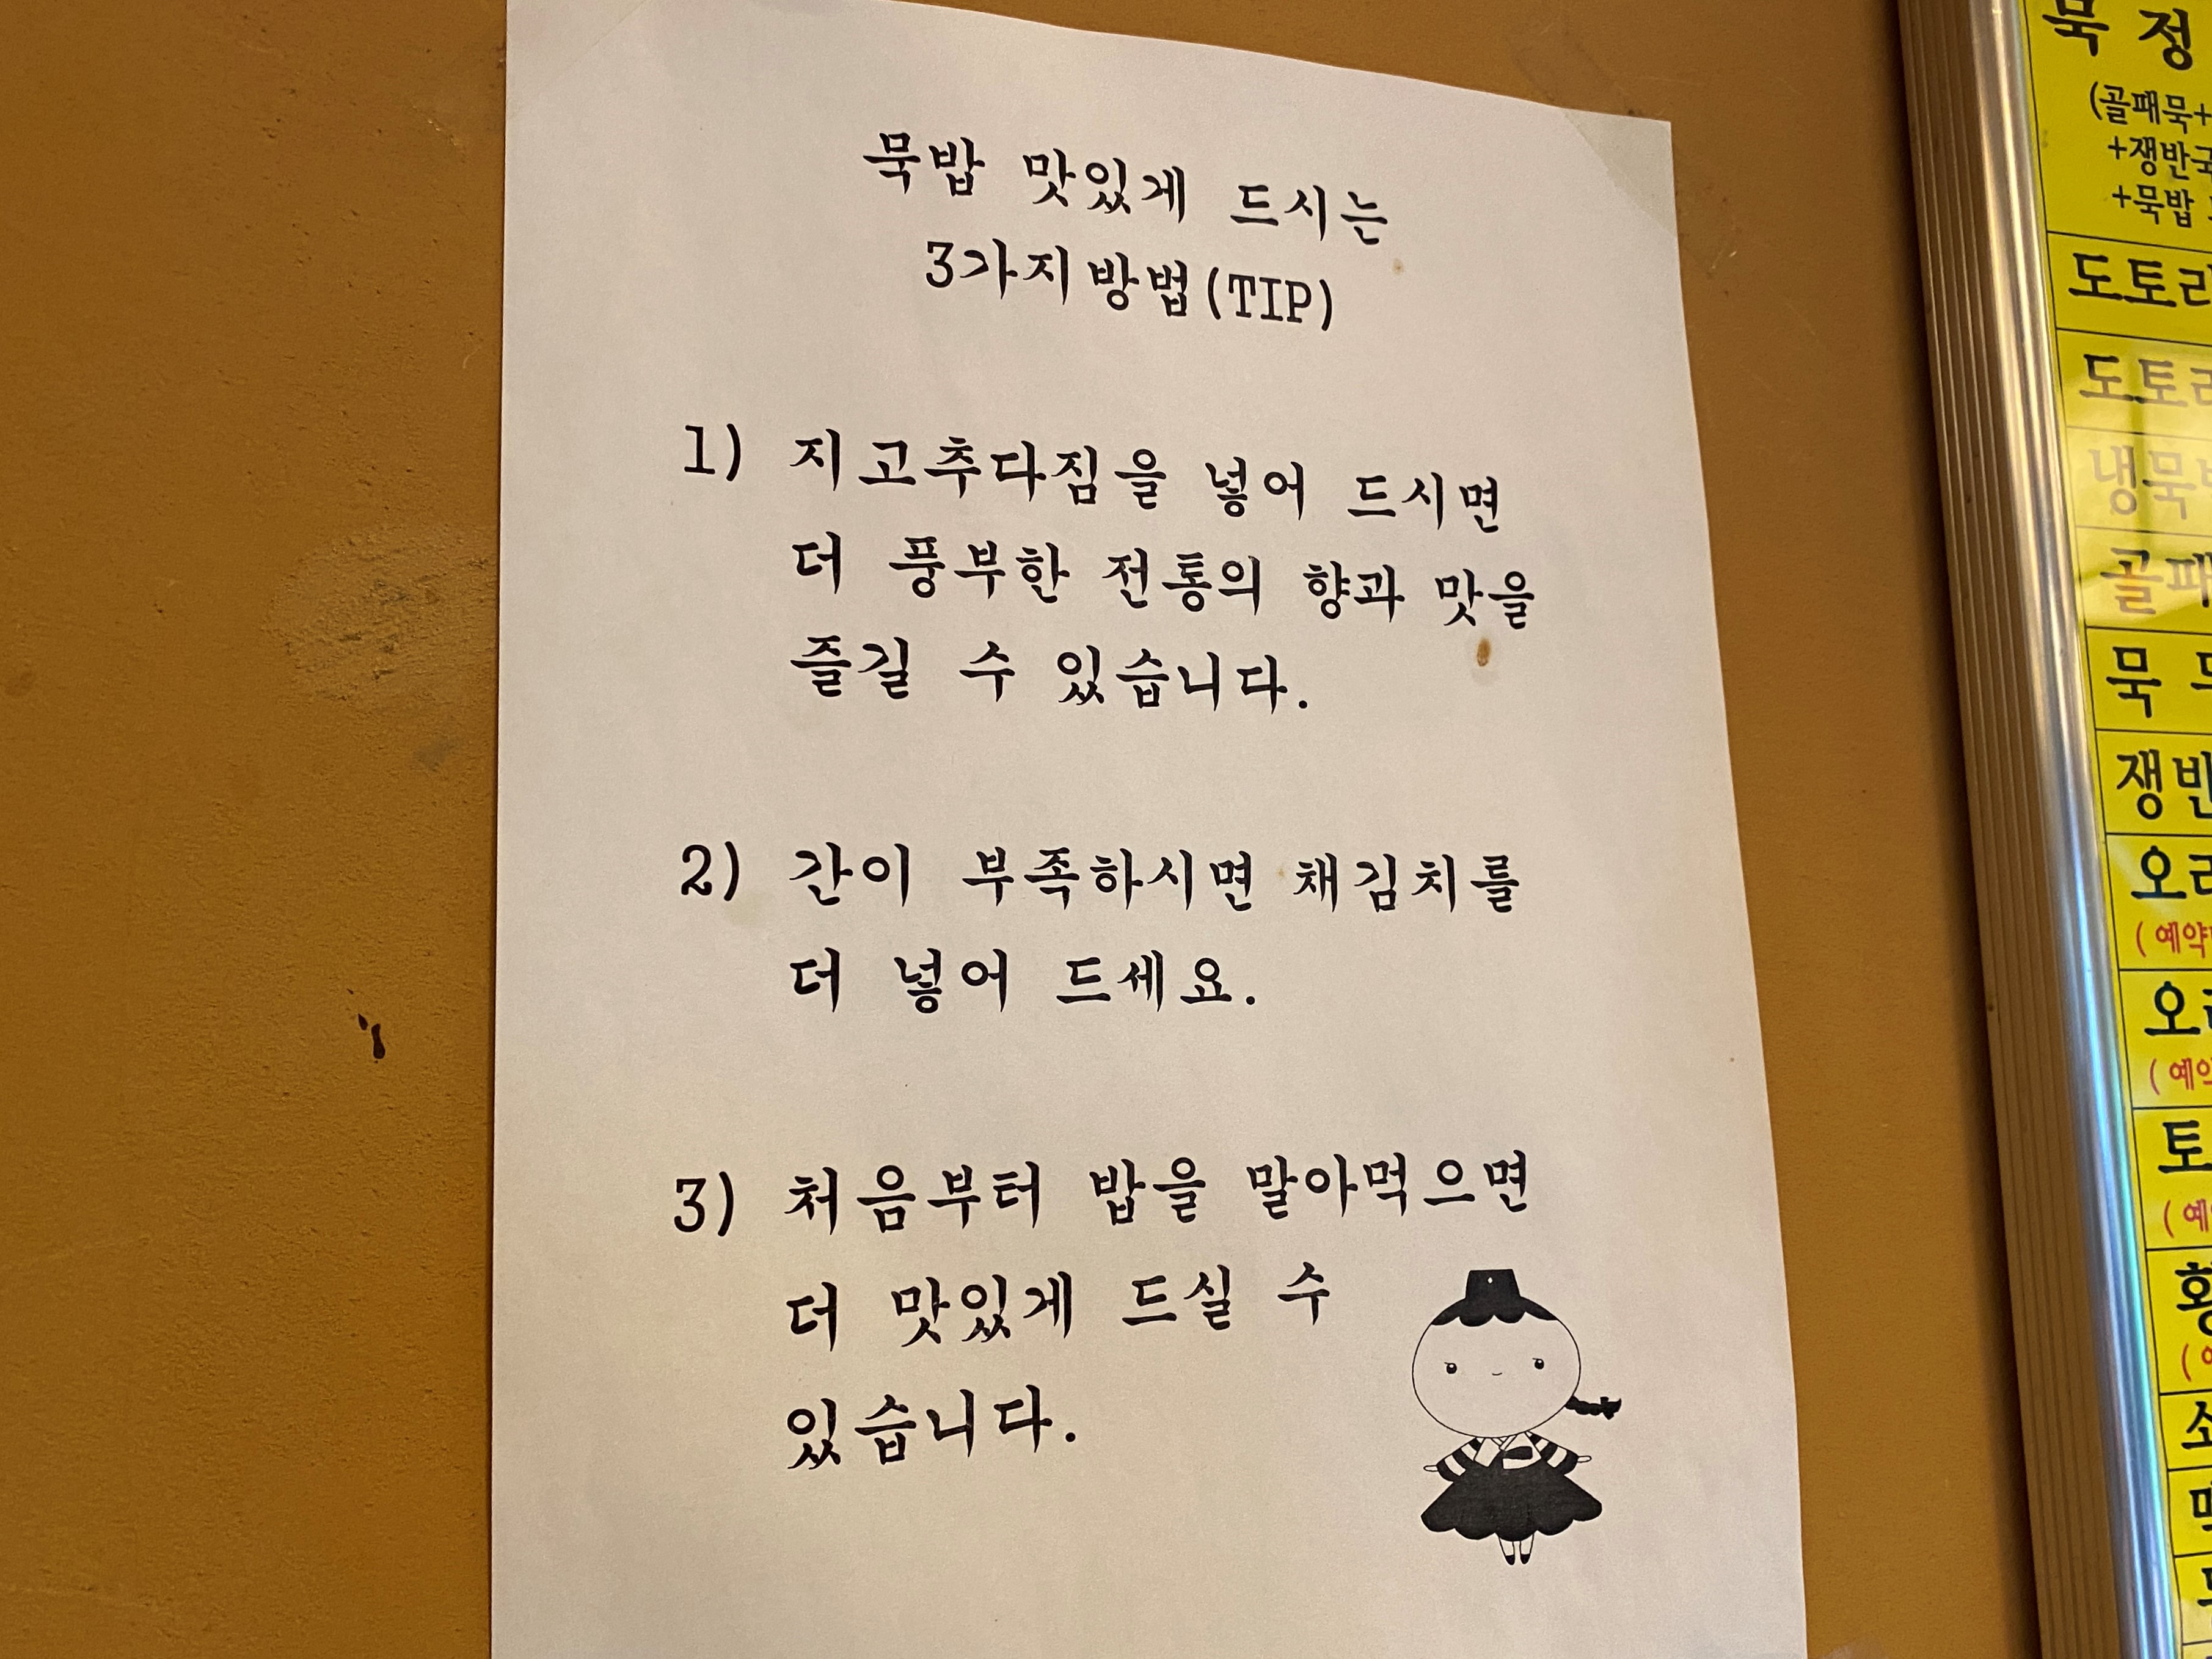 묵밥 맛있게 드시는
3가지방법(TIP)
1) 지고추다짐을 넣어 드시면
더 풍부한 전통의 향과 맛을
즐길 수 있습니다.
2) 간이 부족하시면 채김치를
더 넣어 드세요.
3) 처음부터 밥을 말아먹으면
더 맛있게 드실 수
있습니다.
묵 정
(골패묵+
+쟁반국
+묵밥
도토리
도토리
냉묵
골패
묵
쟁반
오리
(예약
오리
(예약
토
(예